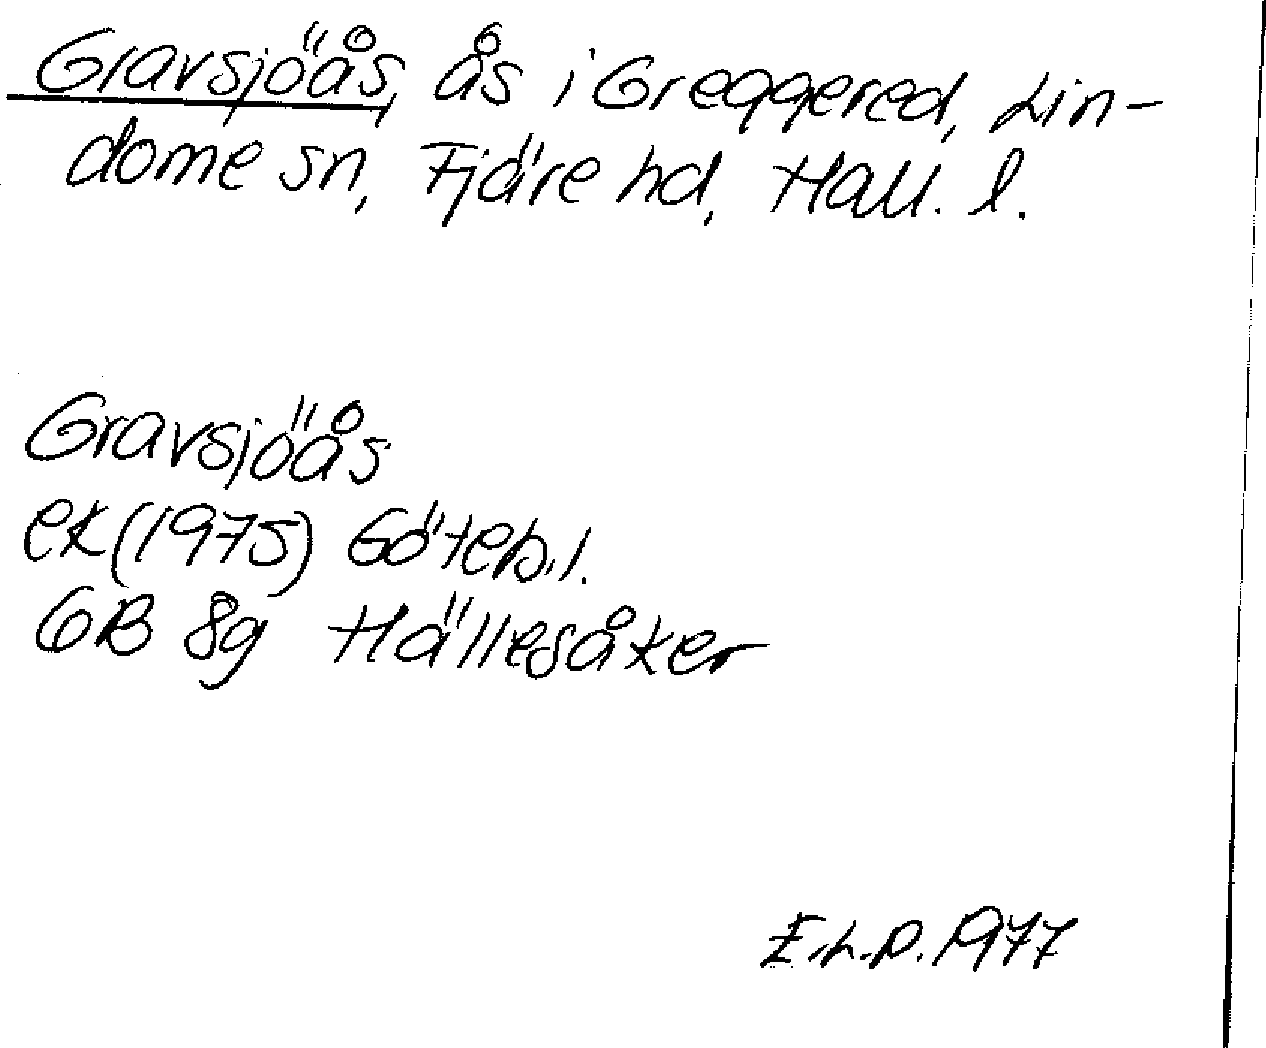 Gravsjöås, ås i Greggered, Lin-
dome sn, Fjäre hd, Hall. l.
Gravsjöås
ek (1975) Göteb. l.
6B 8g Hällesåker
E.L.P. 1977